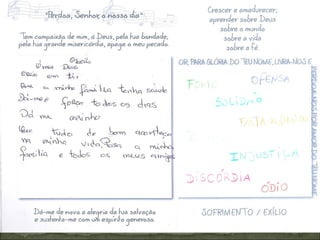 "Perdoa, Senhor, o nosso dia"
Tem compaixão de mim, ó Deus, pela tua bondade;
pela tua grande misericórdia, apaga o meu pecado.
Oração
meu Deus
em ti
Que a minha família tenha saúde
Dá-me força todos os dias
Dá me
Que tudo de bom aconteça
na minha vida, Para a minha
família e todos os meus amigos
Dá-me de novo a alegria da tua salvação
e sustenta-me com um espírito generoso.
Crescer e amadurecer;
aprender sobre Deus
sobre o mundo
sobre a vida
sobre a fé
OR, PARA GLÓRIA DO TEU NOME, LIVRA-NOS E
PERDOA-NOS POR AMOR DO TEU NOME
FOME
OFENSA
SOLIDÃO
INJUSTIÇA
DISCÓRDIA
ÓDIO
SOFRIMENTO / EXÍLIO